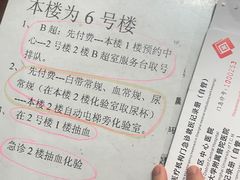 本楼为6号楼
1、B超：先付费---本楼1楼预约中
心---2号楼2楼B超室服务台取号
排队。
2、先付费---白带常规、血常规、尿
常规（在本楼2楼化验室取尿杯）
---本楼2楼自动电梯旁化验室。
在2号楼1楼抽血
急诊2楼抽血化验
医疗机构门急诊就医记录册（自管）
区中心医院